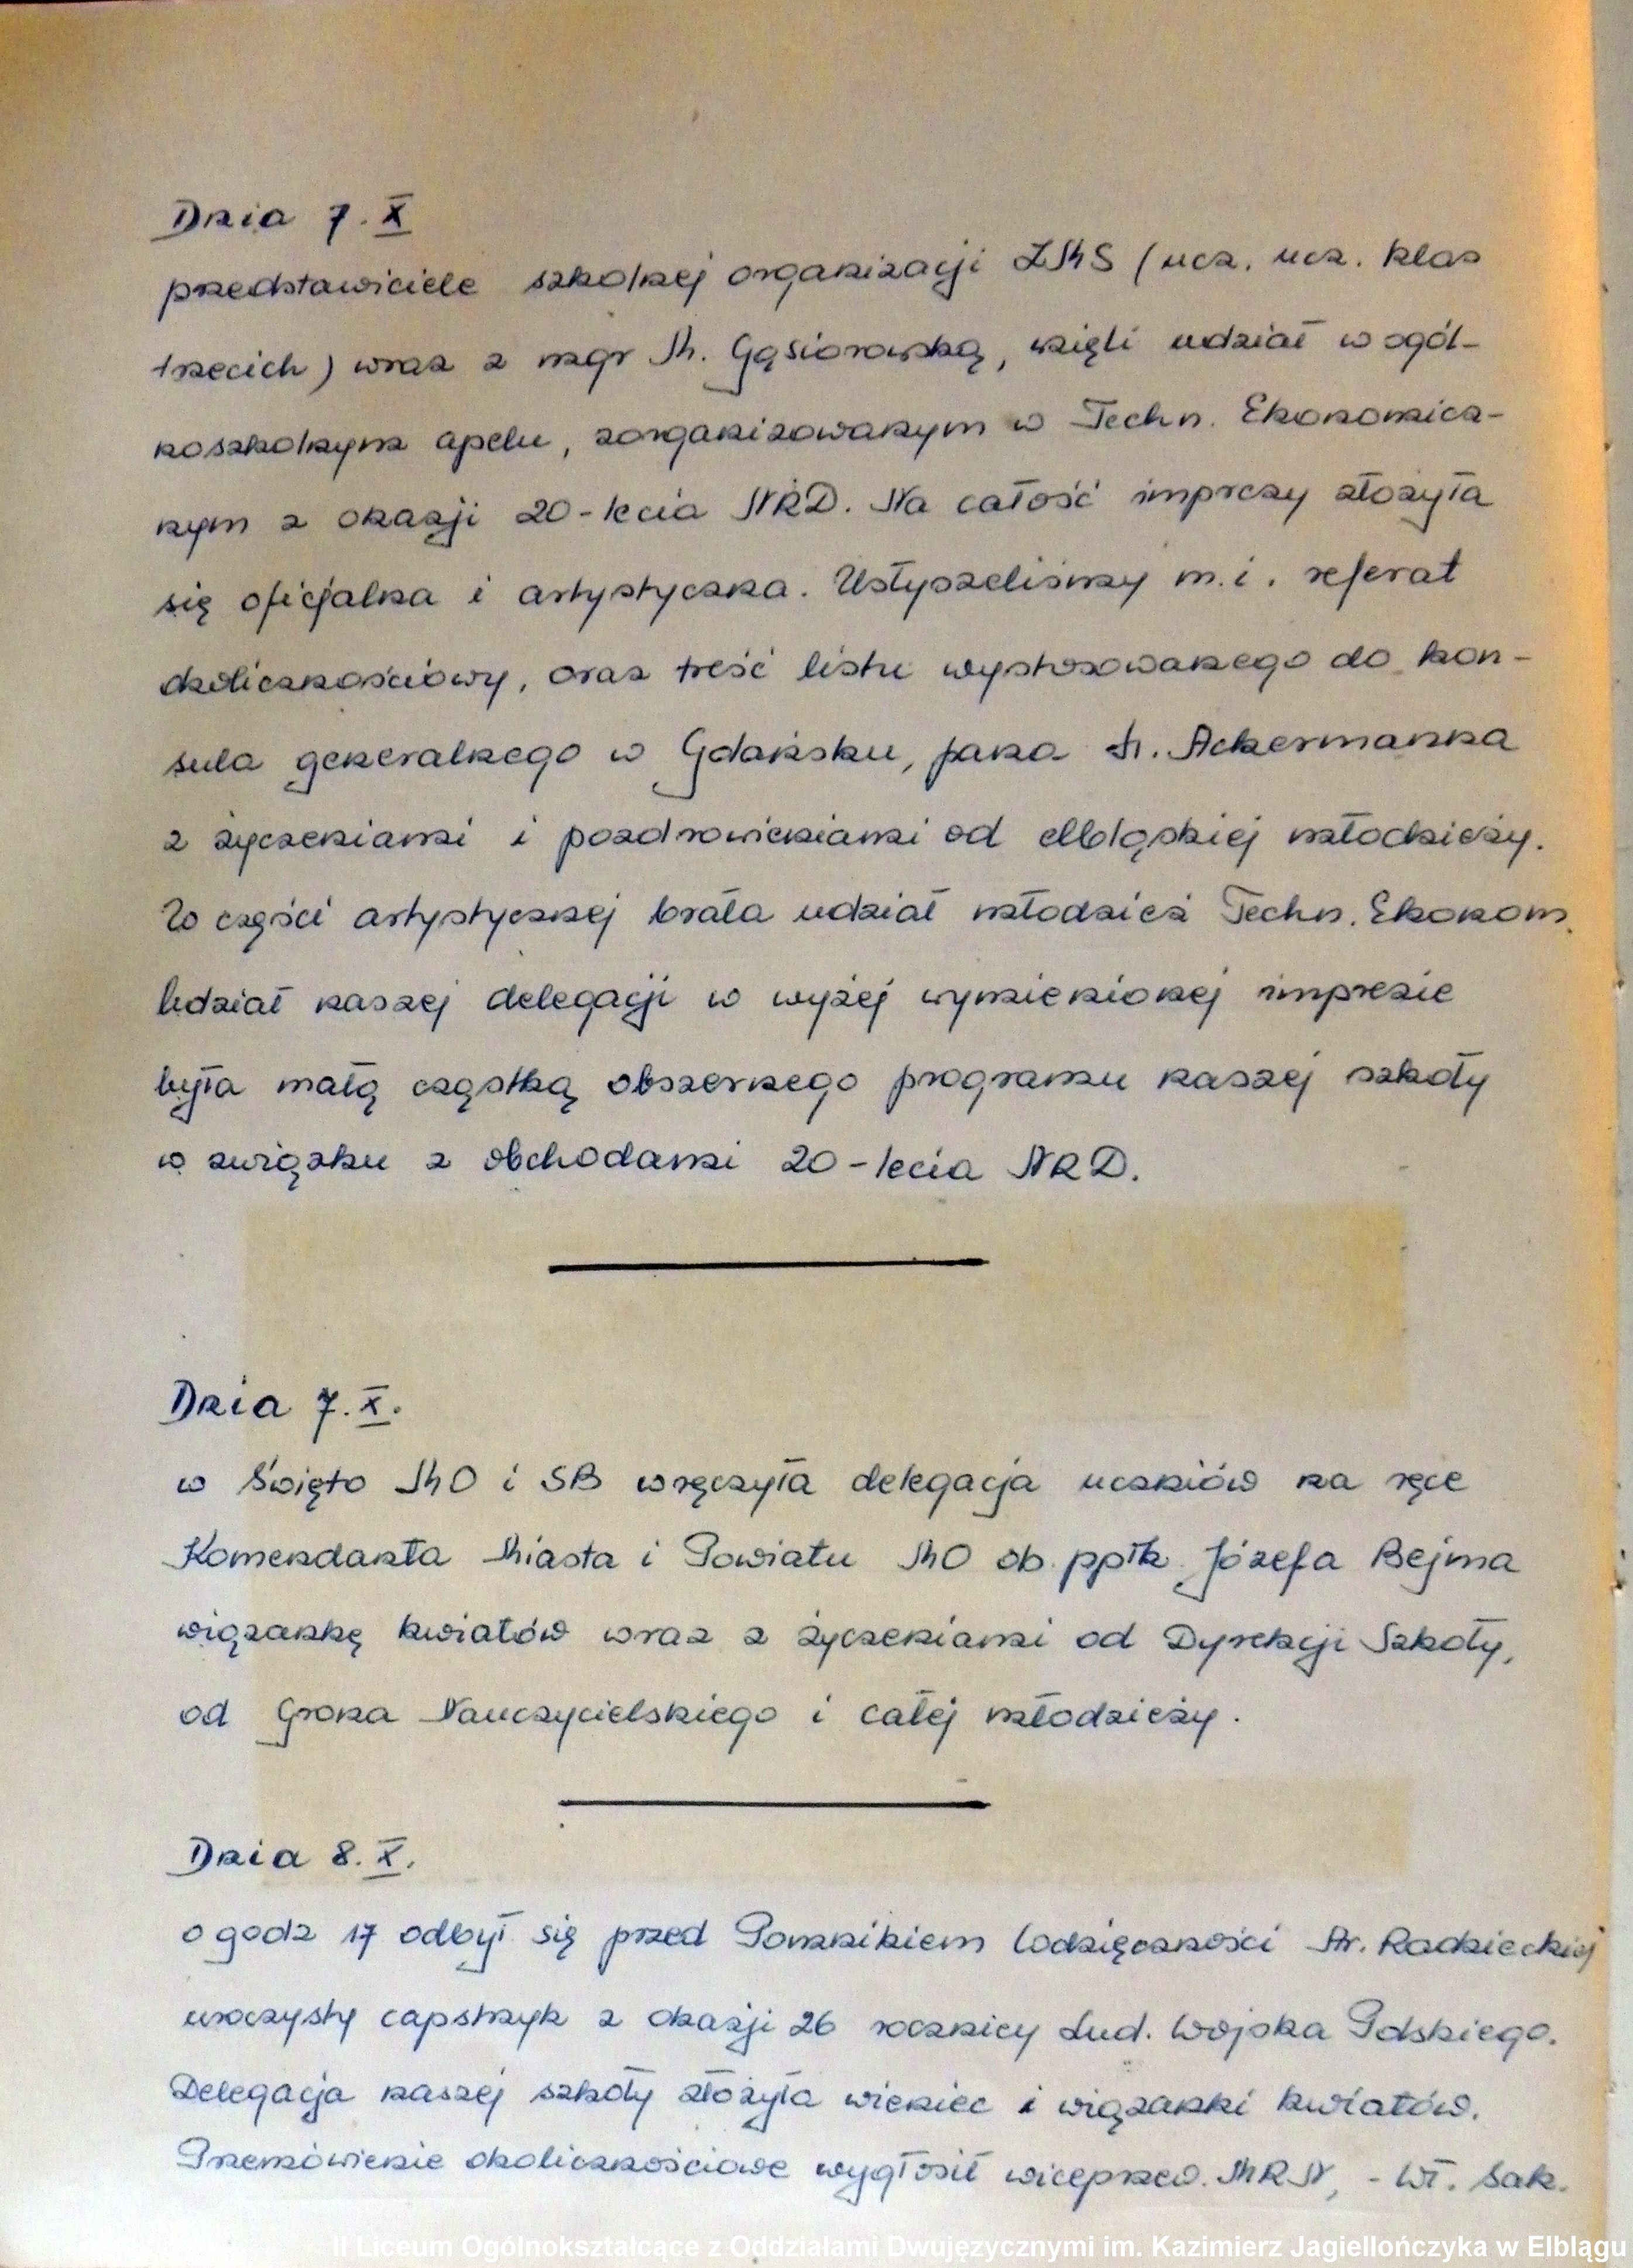 Dnia 7. X
przedstawiciele szkolnej organizacji ZMS (ucz. ucz. klas
trzecich) wraz z mgr M. Gąsiorowską, wzięli udział w ogól-
noszkolnym apelu, zorganizowanym w Techn. Ekonomicz-
nym z okazji 20-lecia NRD. Na całość imprezy złożyła
się oficjalna i artystyczna. Usłyszeliśmy m.i. referat
okolicznościowy, oraz treść listu wystosowanego do kon-
sula generalnego w Gdańsku, pana H. Ackermanna
z życzeniami i pozdrowieniami od elbląskiej młodzieży.
W części artystycznej brała udział młodzież Techn. Ekonom.
Udział naszej delegacji w wyżej wymienionej imprezie
była małą cząstką obszernego programu naszej szkoły
w związku z obchodami 20-lecia NRD.
Dnia 7. X.
w Święto MO i SB wręczyła delegacja uczniów na ręce
Komendanta Miasta i Powiatu MO ob. ppłk. Józefa Bejma
wiązankę kwiatów wraz z życzeniami od Dyrekcji Szkoły,
od Grona Nauczycielskiego i całej młodzieży.
Dnia 8. X.
o godz 17 odbył się przed Pomnikiem Wdzięczności Ar. Radzieckiej
uroczysty capstrzyk z okazji 26 rocznicy Lud. Wojska Polskiego.
Delegacja naszej szkoły złożyła wieniec i wiązanki kwiatów.
Przemówienie okolicznościowe wygłosił wiceprzew. MRN, - Wł. Sak.
II Liceum Ogólnokształcące z Oddziałami Dwujęzycznymi im. Kazimierz Jagiellończyka w Elblągu